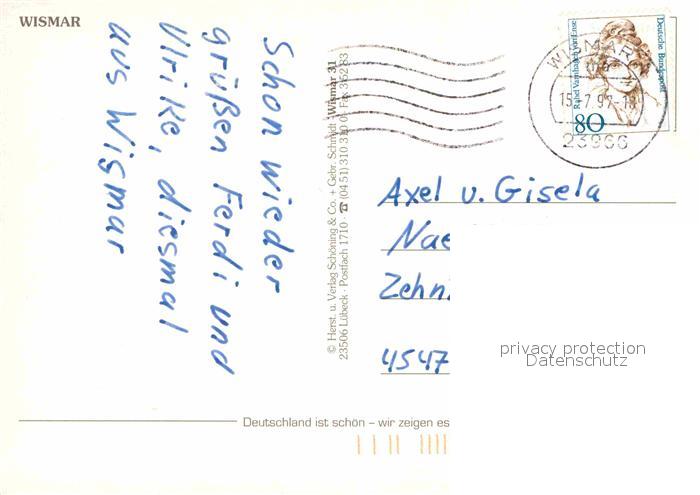 WISMAR
Schon wieder
grüßen Ferdi und
Ulrike, diesmal
aus Wismar
© Herst. u. Verlag Schöning & Co. + Gebr. Schmidt · Wismar 31
23506 Lübeck · Postfach 1710 · ☎ (04 51) 310 310 · Fax
Deutsche Bundespost
80
WISMAR
23966
Axel u. Gisela
Nae
Zehn
4547
privacy protection
Datenschutz
Deutschland ist schön – wir zeigen es